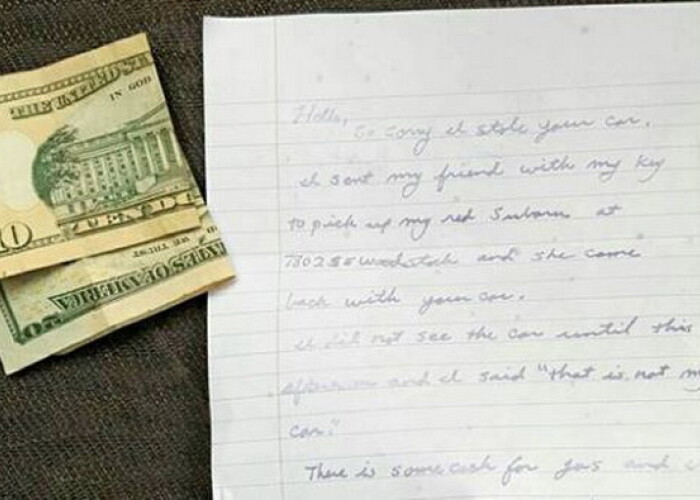 THE UNITED STA
IN GOD
TEN DO
10
WE TRUST
STATES OF AMERICA
Hello,
So sorry I stole your car.
I sent my friend with my key
to pick up my red Subaru at
7802 SE Woodstock and she came
back with your car.
I did not see the car until this
afternoon and I said "that is not m
car."
There is some cash for gas and